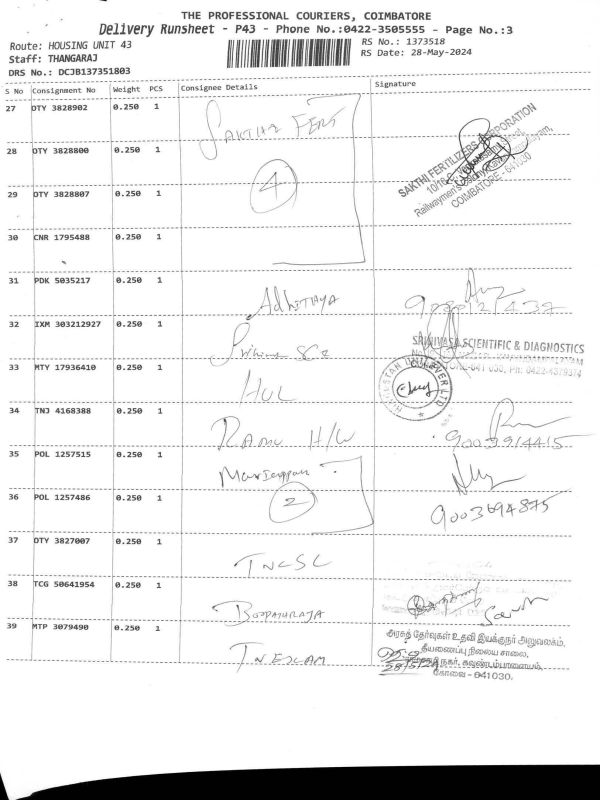 THE PROFESSIONAL COURIERS, COIMBATORE
Delivery Runsheet - P43 - Phone No.:0422-3505555 - Page No.:3
Route: HOUSING UNIT 43
RS No.: 1373518
Staff: THANGARAJ
RS Date: 28-May-2024
DRS No.: DCJB137351803
S No Consignment No Weight PCS Consignee Details Signature
27 OTY 3828902 0.250 1 SAKTHI FERT
28 OTY 3828800 0.250 1
SAKTHI FERTILIZERS CORPORATION
COIMBATORE - 641030
29 OTY 3828807 0.250 1
4
30 CNR 1795488 0.250 1
31 PDK 5035217 0.250 1 ADHITHYA
32 IXM 303212927 0.250 1
SRINIVASA SCIENTIFIC & DIAGNOSTICS
33 MTY 17936410 0.250 1 HUL
HINDUSTAN UNILEVER LTD
34 TNJ 4168388 0.250 1 RAMU H/W
9003914415
35 POL 1257515 0.250 1
36 POL 1257486 0.250 1 2
9003694875
37 OTY 3827007 0.250 1 TNCSC
38 TCG 50641954 0.250 1 BOOPATHIRAJA
39 MTP 3079490 0.250 1 T.N.EXAM
அரசுத் தேர்வுகள் உதவி இயக்குநர் அலுவலகம்,
தீயணைப்பு நிலைய சாலை,
நகர், கவுண்டம்பாளையம்,
28/5/24
கோவை - 641030.